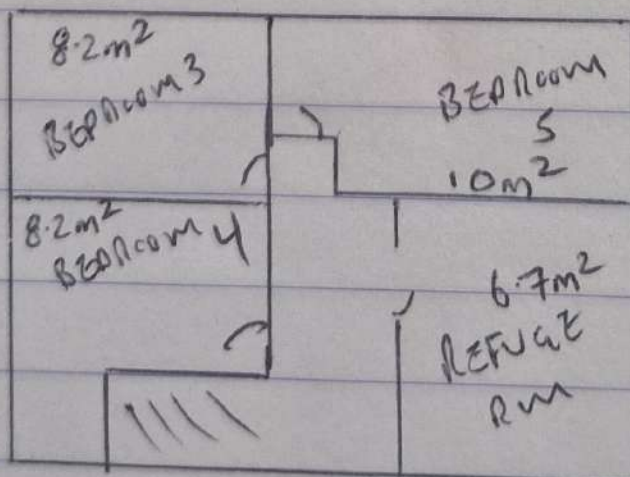 8.2m²
BEDROOM 3
BEDROOM
5
10m²
8.2m²
BEDROOM 4
6.7m²
REFUGE
RM